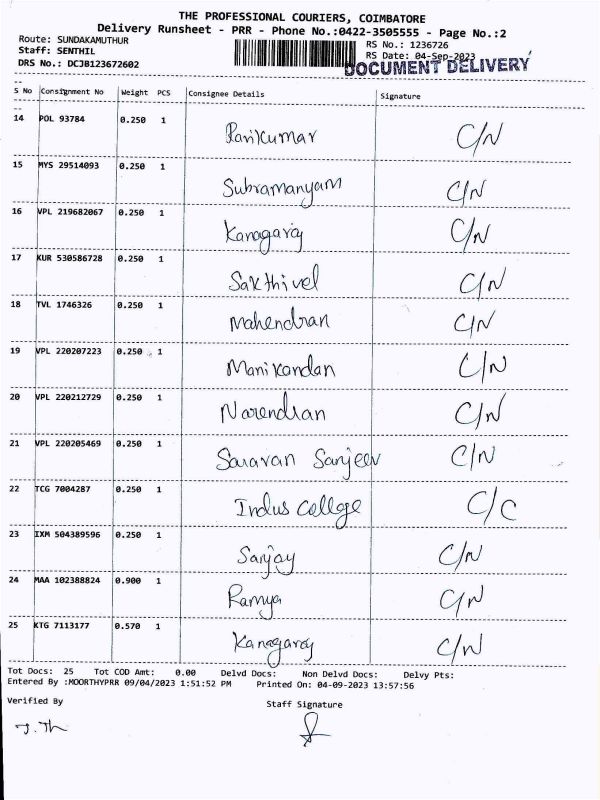 THE PROFESSIONAL COURIERS, COIMBATORE
Delivery Runsheet - PRR - Phone No.:0422-3505555 - Page No.:2
Route: SUNDAKAMUTHUR
Staff: SENTHIL
DRS No.: DCJB123672602
RS No.: 1236726
RS Date: 04-Sep-2023
DOCUMENT DELIVERY
S No Consignment No Weight PCS Consignee Details Signature
14 POL 93784 0.250 1 Ravikumar C/N
15 MYS 29514093 0.250 1 Subramanyam C/N
16 VPL 219682067 0.250 1 Kanagaraj C/N
17 KUR 530586728 0.250 1 Sakthivel C/N
18 TVL 1746326 0.250 1 Mahendran C/N
19 VPL 220207223 0.250 1 Manikandan C/N
20 VPL 220212729 0.250 1 Narendran C/N
21 VPL 220205469 0.250 1 Saravan Sanjeev C/N
22 TCG 7004287 0.250 1 Indus college C/C
23 IXM 504389596 0.250 1 Sanjay C/N
24 MAA 102388824 0.900 1 Ramya C/N
25 KTG 7113177 0.570 1 Kanagaraj C/N
Tot Docs: 25 Tot COD Amt: 0.00 Delvd Docs: Non Delvd Docs: Delvy Pts:
Entered By :MOORTHYPRR 09/04/2023 1:51:52 PM Printed On: 04-09-2023 13:57:56
Verified By
Staff Signature